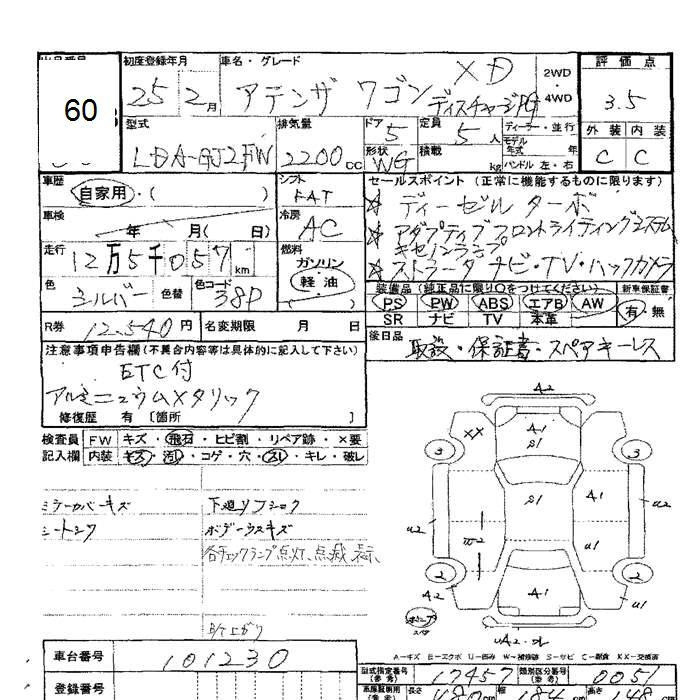 出品番号
60
初度登録年月
25 2月
車名・グレード
アテンザ ワゴン XD
ディスチャージPG
2WD・4WD
評価点
3.5
外装 内装
C C
型式
LDA-GJ2FW
排気量
2200cc
ドア
5
形状
WG
定員
5人
積載
kg
ディーラー・並行
モデル年式 年
ハンドル 左・右
車歴
自家用・( )
シフト
FAT
車検
年 月( 日)
冷房
AC
走行
12万5千057km
燃料
ガソリン
軽・油
色
シルバー
色替
色コード
38P
R券
12,540円
名変期限 月 日
セールスポイント(正常に機能するものに限ります)
ディーゼルターボ
アダプティブフロントライティングシステム
キセノンランプ
ストラーダナビ・TV・バックカメラ
装備品(純正品に限り○をつけてください)
PS PW ABS エアB AW
SR ナビ TV 本革
新車保証書
有・無
後日品
取説・保証書・スペアキーレス
注意事項申告欄(不具合内容等は具体的に記入して下さい)
ETC付
アルミニュウムメタリック
修復歴 有 〔箇所 〕
検査員 FW キズ・飛石・ヒビ割・リペア跡・×要
記入欄 内装 キズ・汚レ・コゲ・穴・スレ・キレ・破レ
ミラーカバーキズ
シートシワ
下廻りフショク
ボデーウスキズ
各チェックランプ点灯、点滅、表示
A2
A1
S1
XX
3
3
S1
A1
U2
U2
U1
2
2
A2
A1
U1
スペア
A-キズ E-エクボ U-凹み W-補修跡 S-サビ C-腐食 XX-交換済
車台番号
101230
登録番号
型式指定番号(参考)
17457
類別区分番号(参考)
0051
長さ
480cm
幅
184cm
高さ
148cm